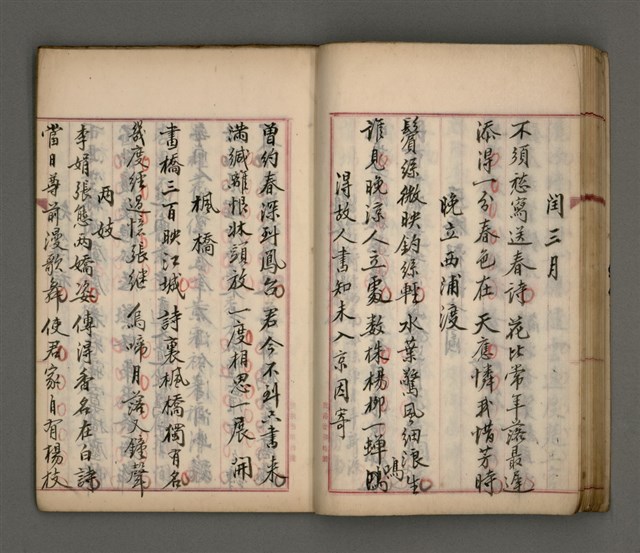 閏三月
不須愁寫送春詩 花比常年落最遲
添得一分春色在 天應憐我惜芳時
晚立西浦渡
鬢絲微映釣絲輕 水葉驚風細浪生
誰見晚涼人立處 數株楊柳一蟬鳴
得故人書知未入京因寄
曾約春深到鳳 君今不到只書來
滿緘離恨牀頭放 一度相思一展開
楓橋
畫橋三百映江城 詩裏楓橋獨有名
幾度經過憶張繼 烏啼月落又鐘聲
兩妓
李娟張態兩嬌姿 傳得香名在白詩
當日尊前漫歌舞 使君家自有楊枝